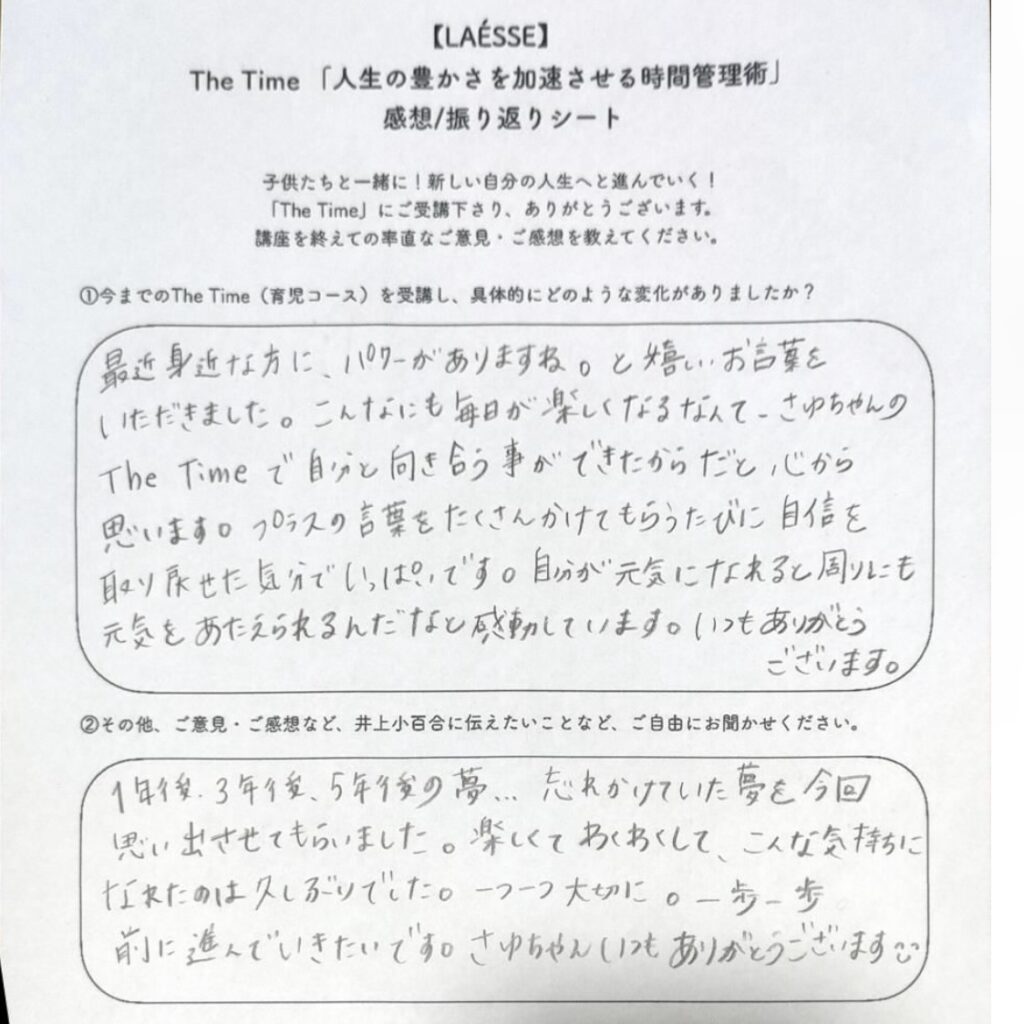 【LAÉSSE】
The Time 「人生の豊かさを加速させる時間管理術」
感想/振り返りシート
子供たちと一緒に！新しい自分の人生へと進んでいく！
「The Time」にご受講下さり、ありがとうございます。
講座を終えての率直なご意見・ご感想を教えてください。
①今までのThe Time（育児コース）を受講し、具体的にどのような変化がありましたか？
最近身近な方に、パワーがありますね。と嬉しいお言葉を
いただきました。こんなにも毎日が楽しくなるなんて-さゆちゃんの
The Timeで自分と向き合う事ができたからだと心から
思います。プラスの言葉をたくさんかけてもらうたびに自信を
取り戻せた気分でいっぱいです。自分が元気になれると周りにも
元気をあたえられるんだなと感動しています。いつもありがとう
ございます。
②その他、ご意見・ご感想など、井上小百合に伝えたいことなど、ご自由にお聞かせください。
1年後、3年後、5年後の夢... 忘れかけていた夢を今回
思い出させてもらいました。楽しくてわくわくして、こんな気持ちに
なれたのは久しぶりでした。一つ一つ大切に。一歩一歩
前に進んでいきたいです。さゆちゃんいつもありがとうございます